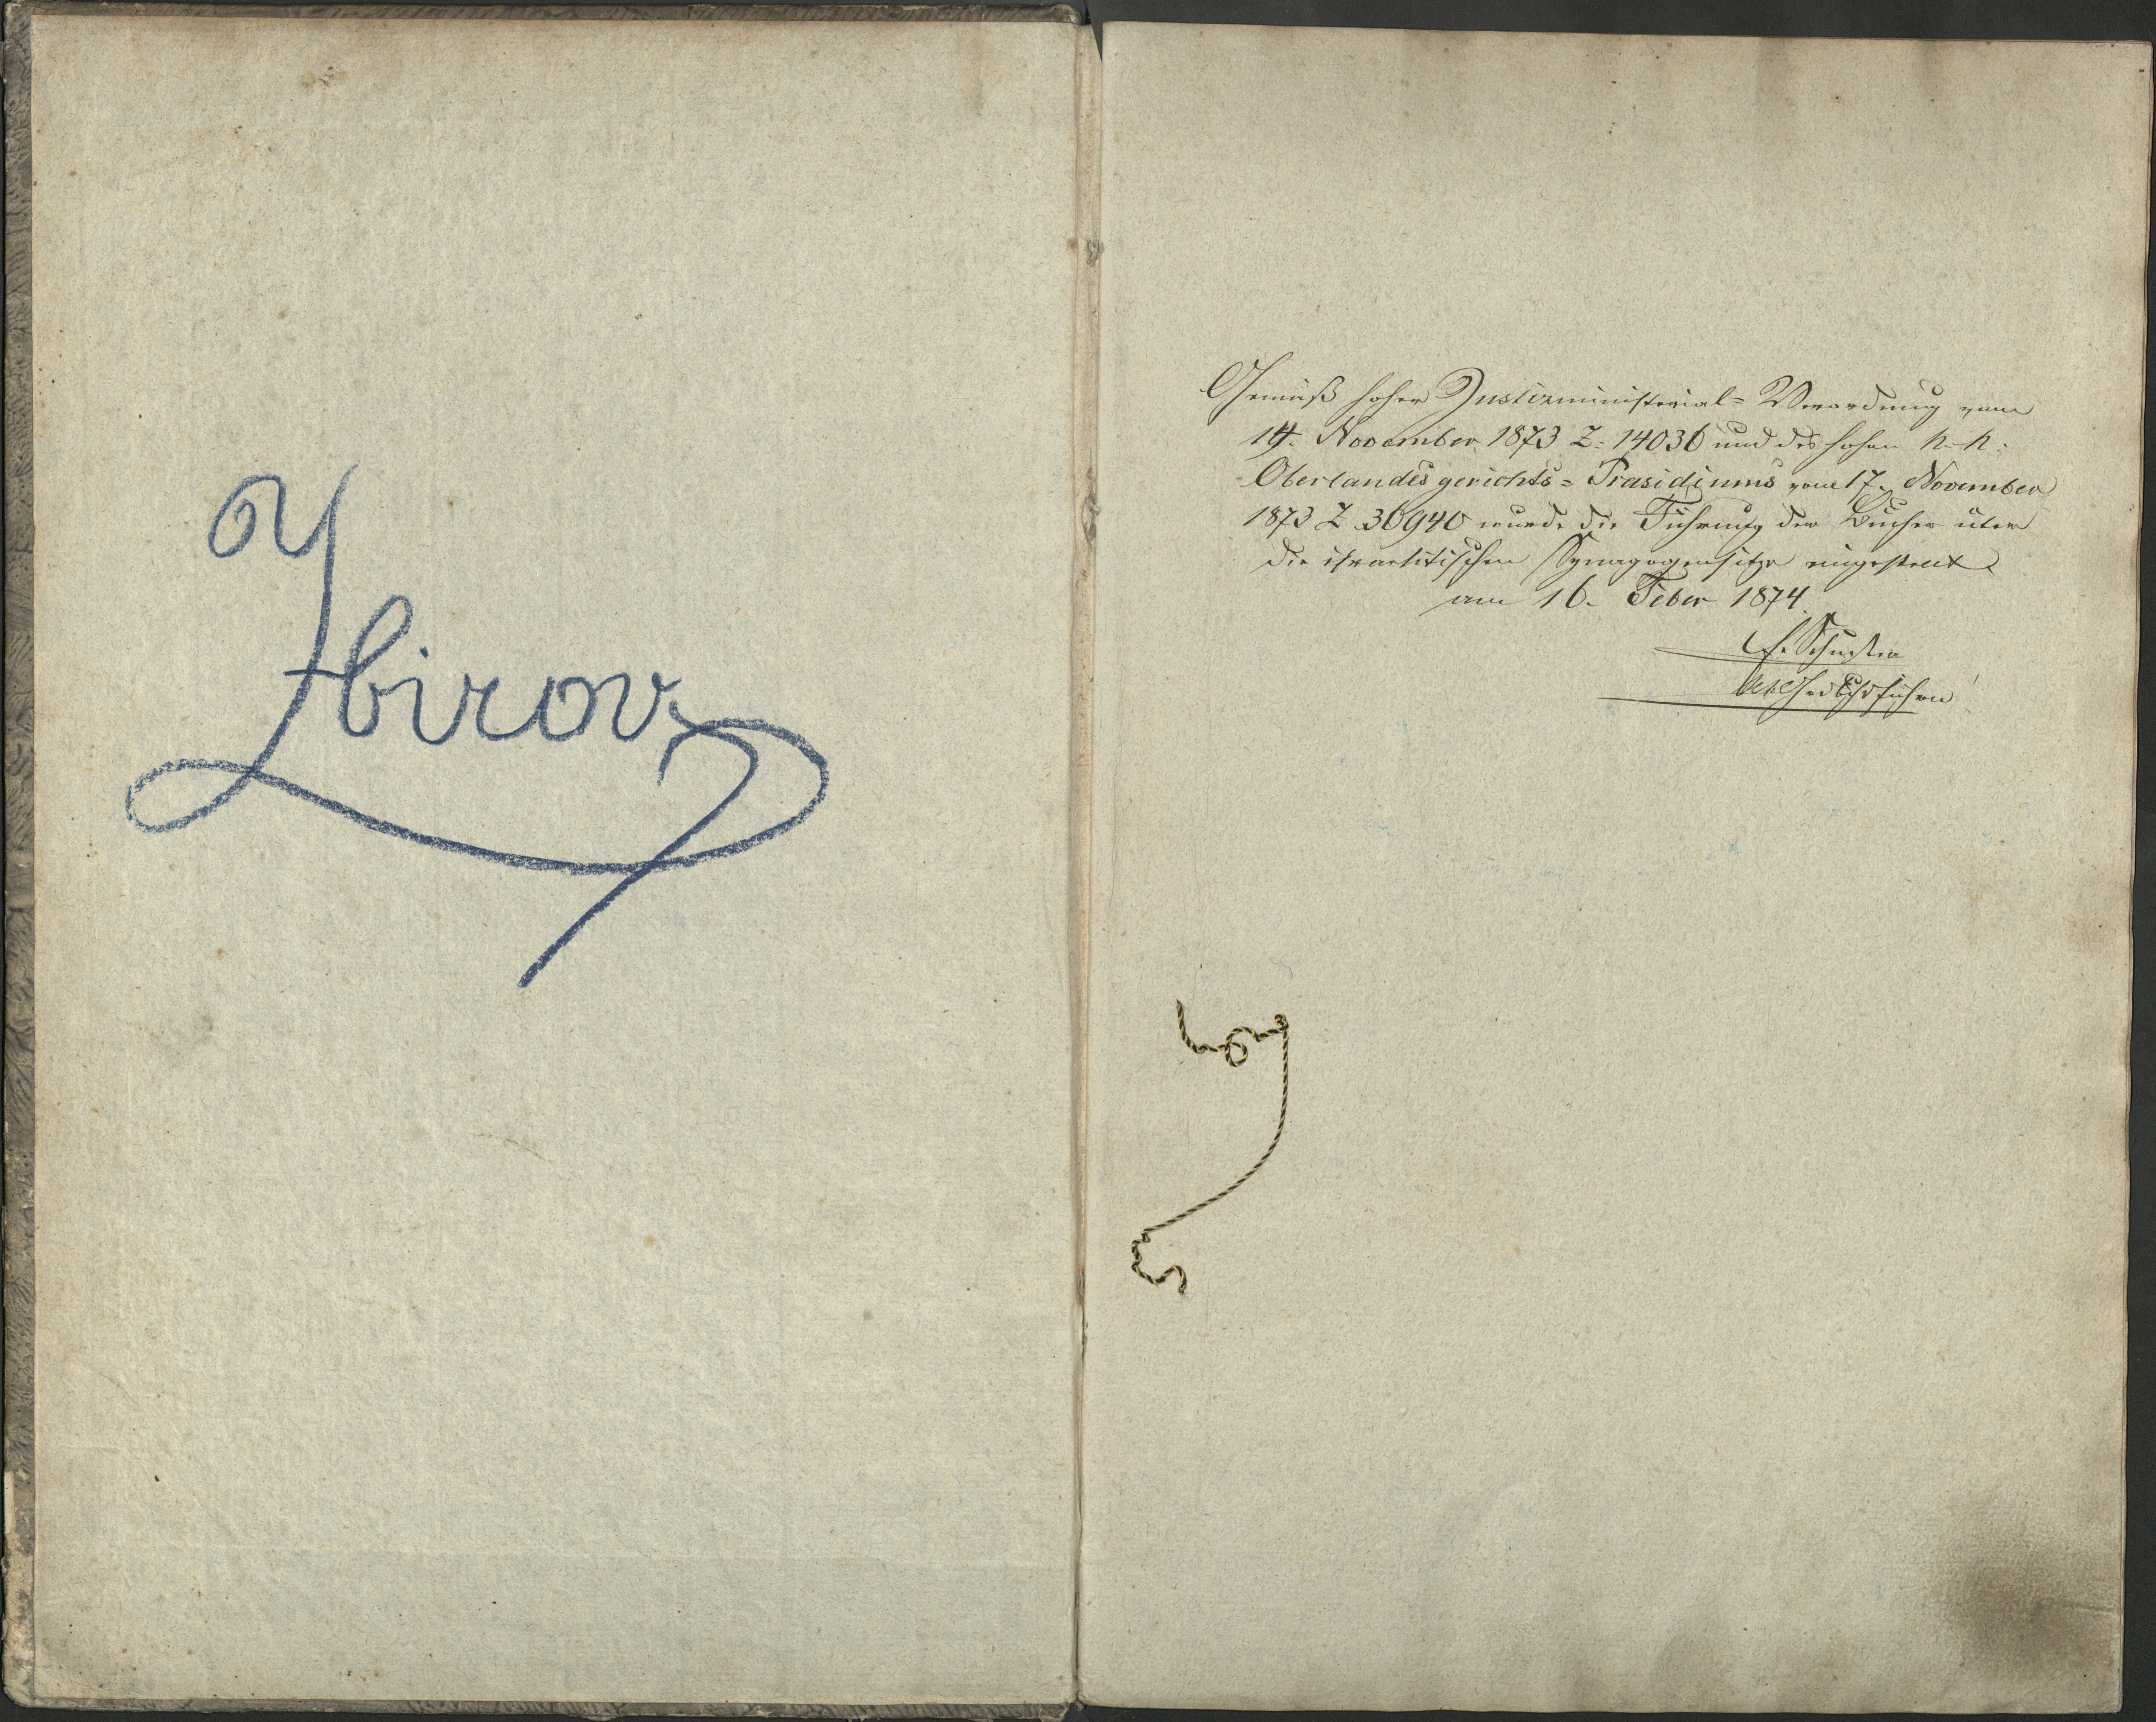 Zbirov
Gemäß hoher Justizministerial= Verordnung vom
14. November 1873 Z. 14036 und des hohen k. k.
Oberlandesgerichts= Präsidiums vom 17. November
1873 Z 30940 wurde die Führung der Bücher über
die israelitischen Synagogensitze eingestellt
am 16. Feber 1874
Schuster